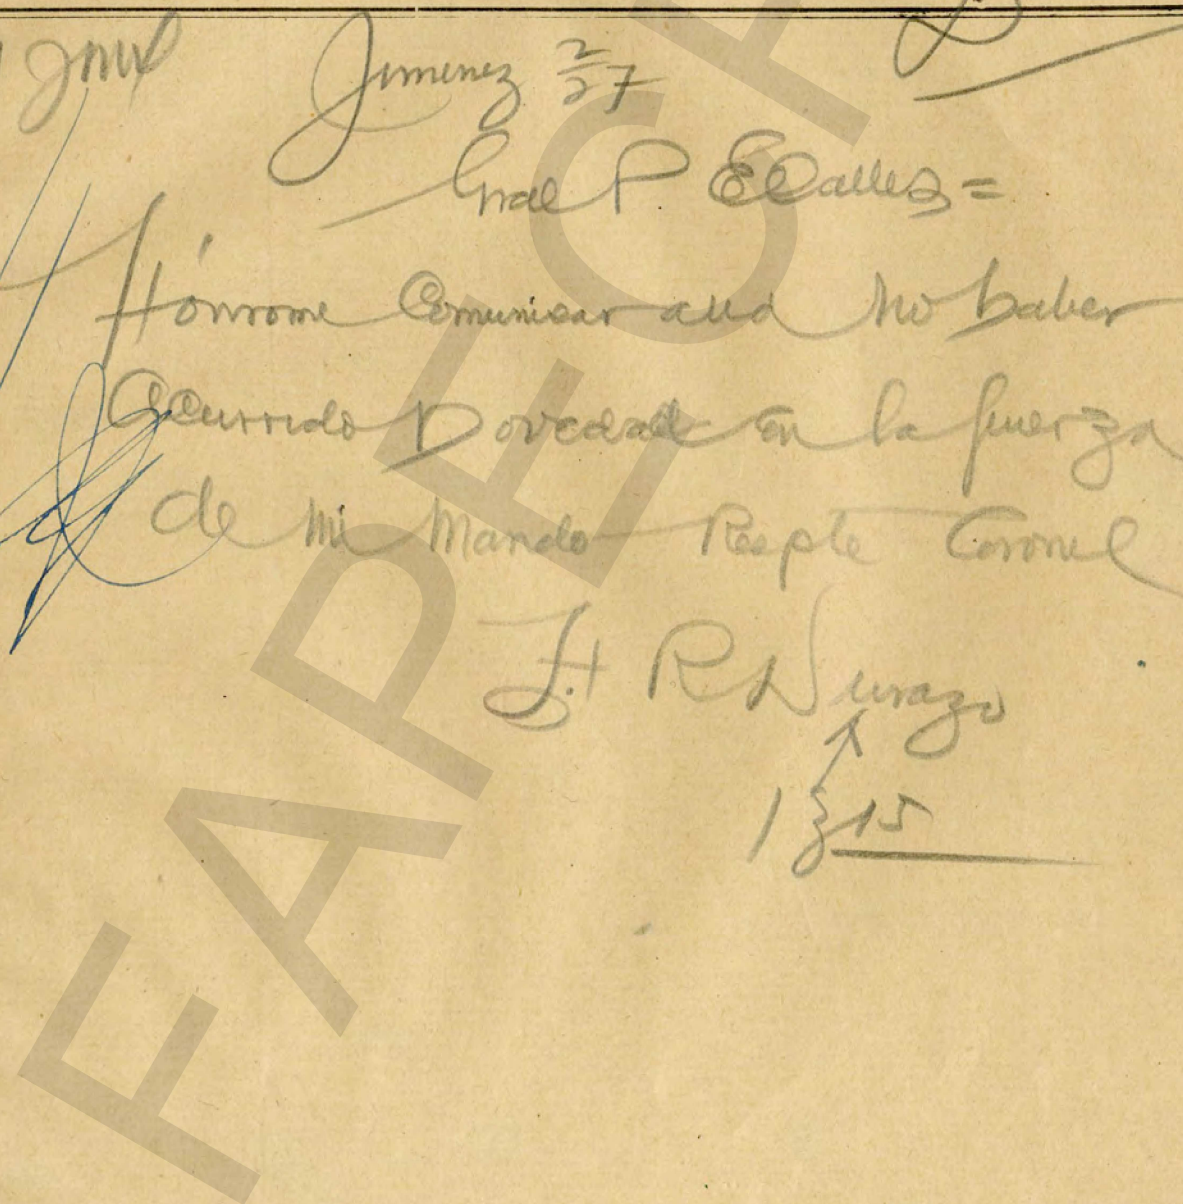 Jimenez 2/27
Gral P E Calles =
Hónrome Comunicar a ud no haber
Ocurrido Novedad en la fuerza
de mi Mando Respte Coronel
J. H R Durazo
1 15
FAPECF